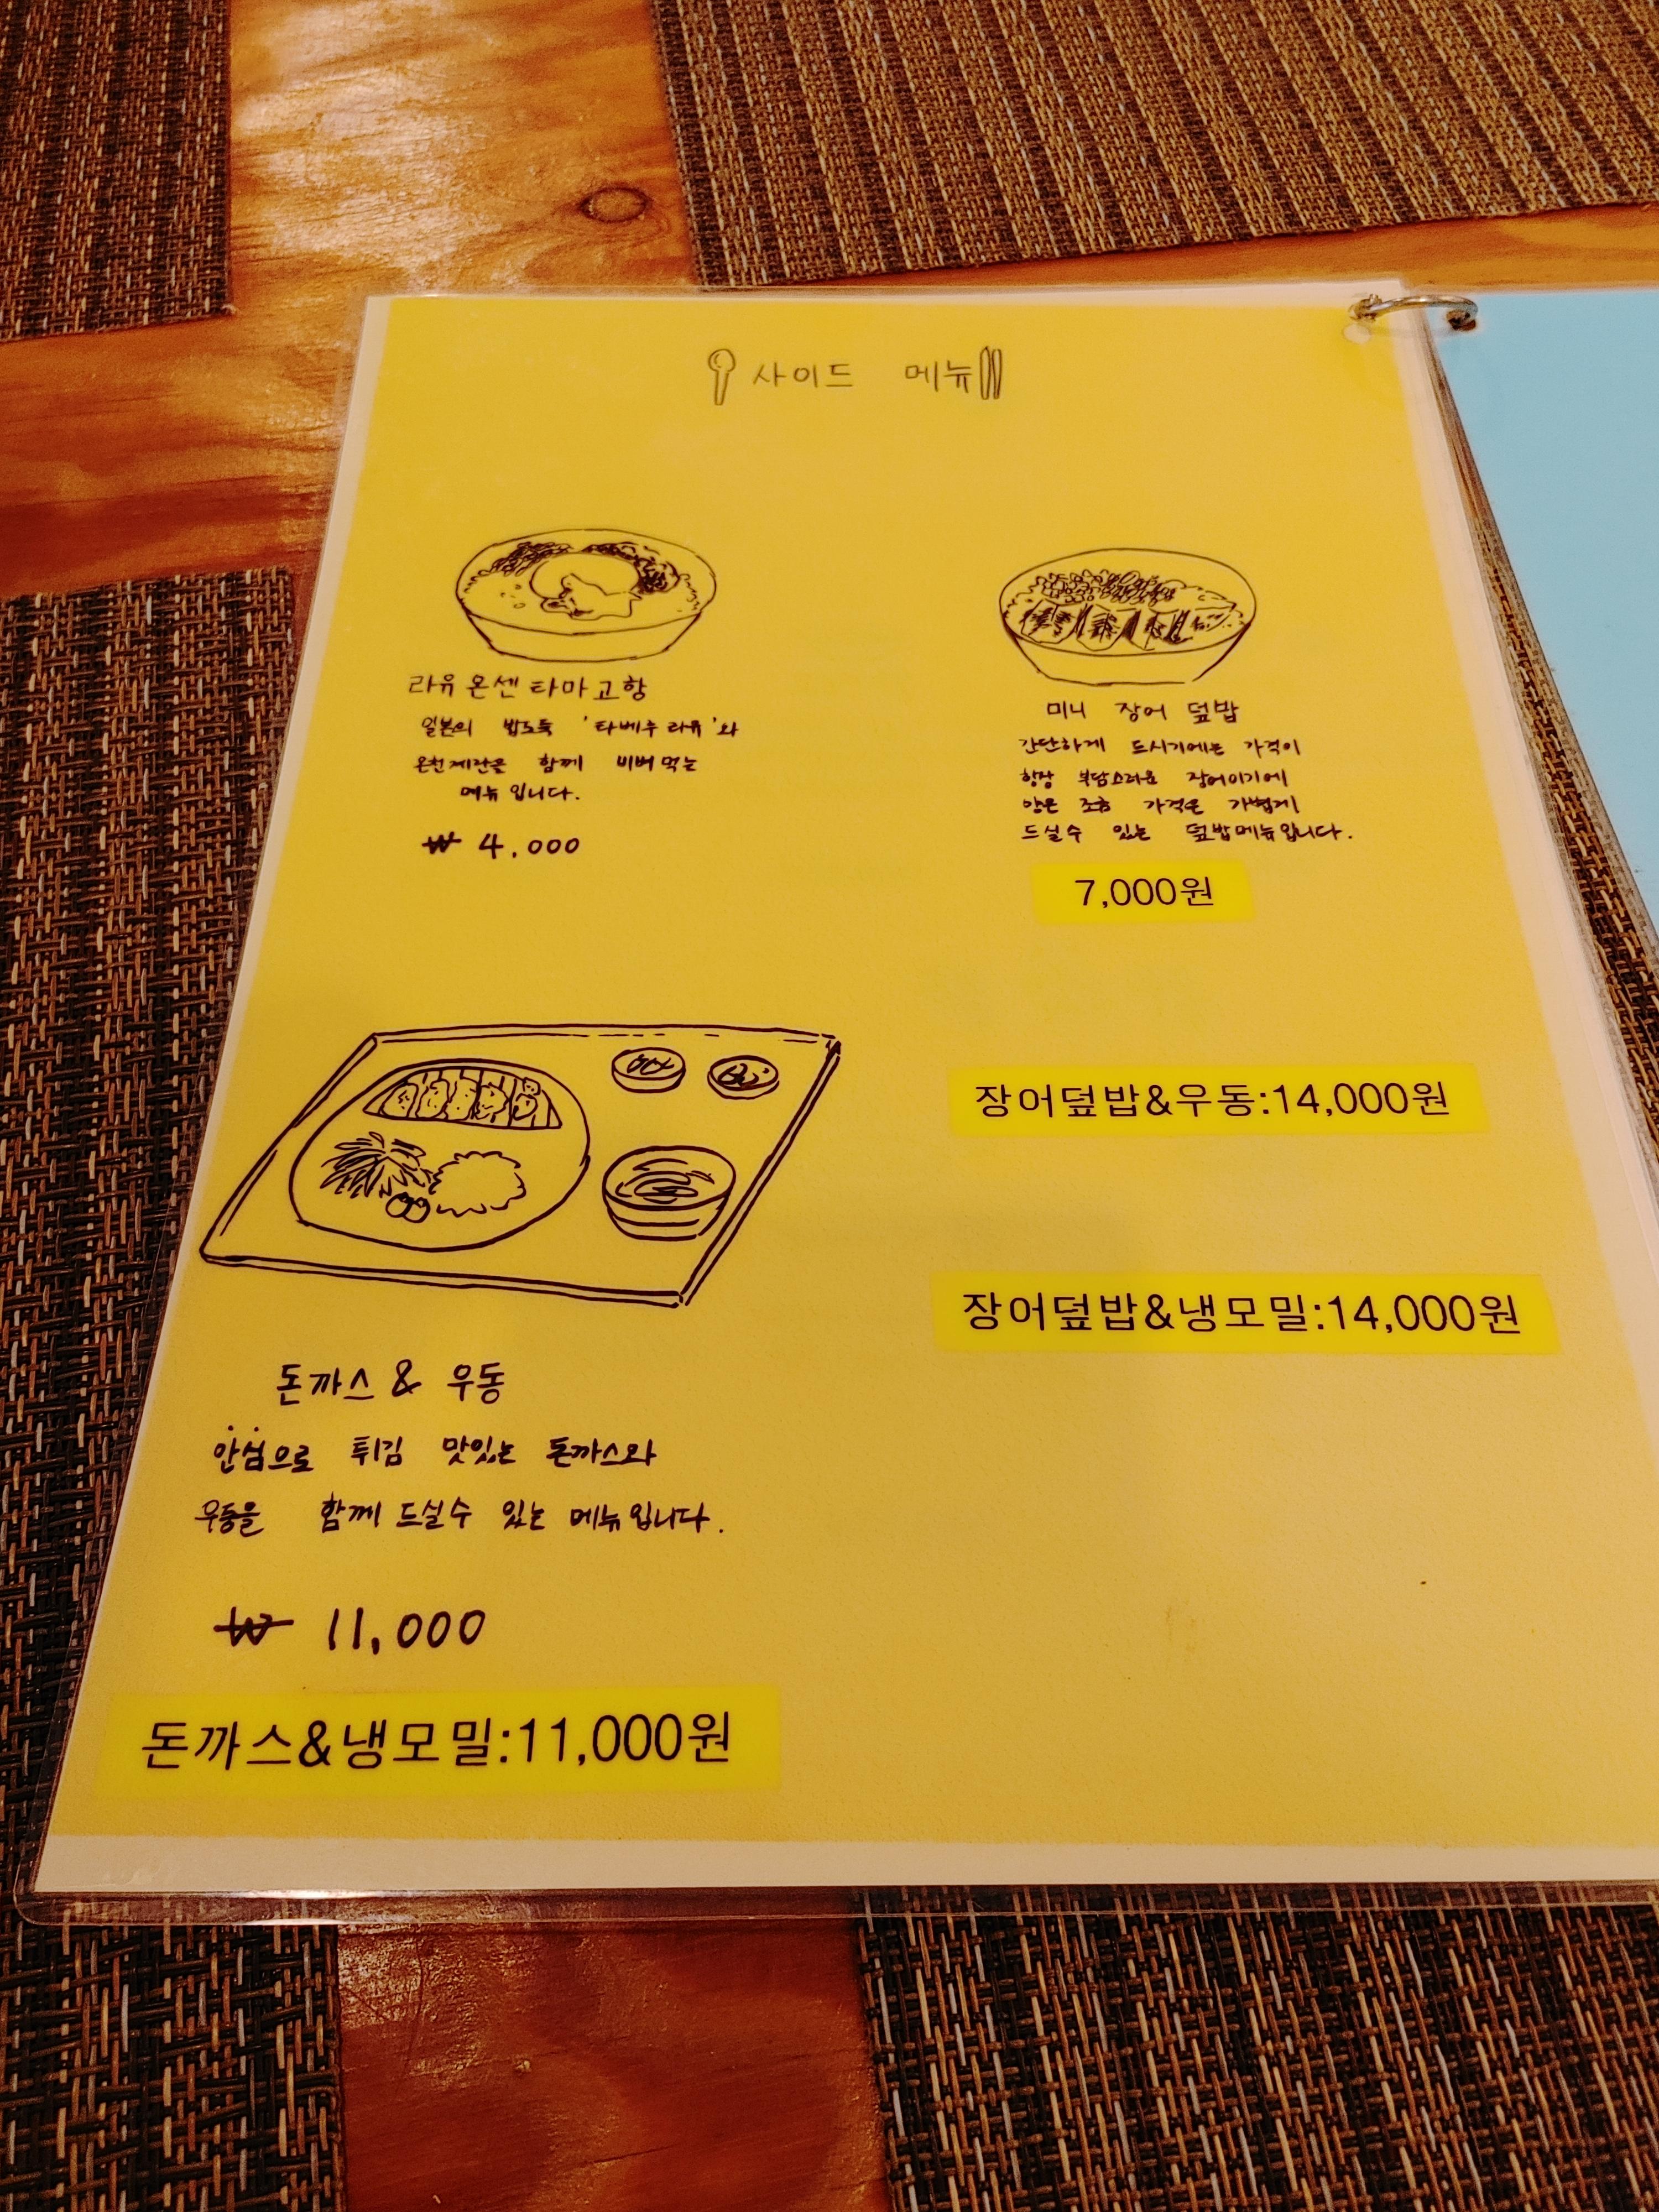 사이드 메뉴
라유 온센 타마고항
일본의 밥도둑 '타베루 라유'와
온천계란을 함께 비벼먹는
메뉴입니다.
₩ 4,000
미니 장어 덮밥
간단하게 드시기에는 가격이
항상 부담스러운 장어이기에
양은 조금 가격은 가볍게
드실수 있는 덮밥메뉴입니다.
7,000원
장어덮밥&우동:14,000원
장어덮밥&냉모밀:14,000원
돈까스 & 우동
안심으로 튀김 맛있는 돈까스와
우동을 함께 드실수 있는 메뉴입니다.
₩ 11,000
돈까스&냉모밀:11,000원